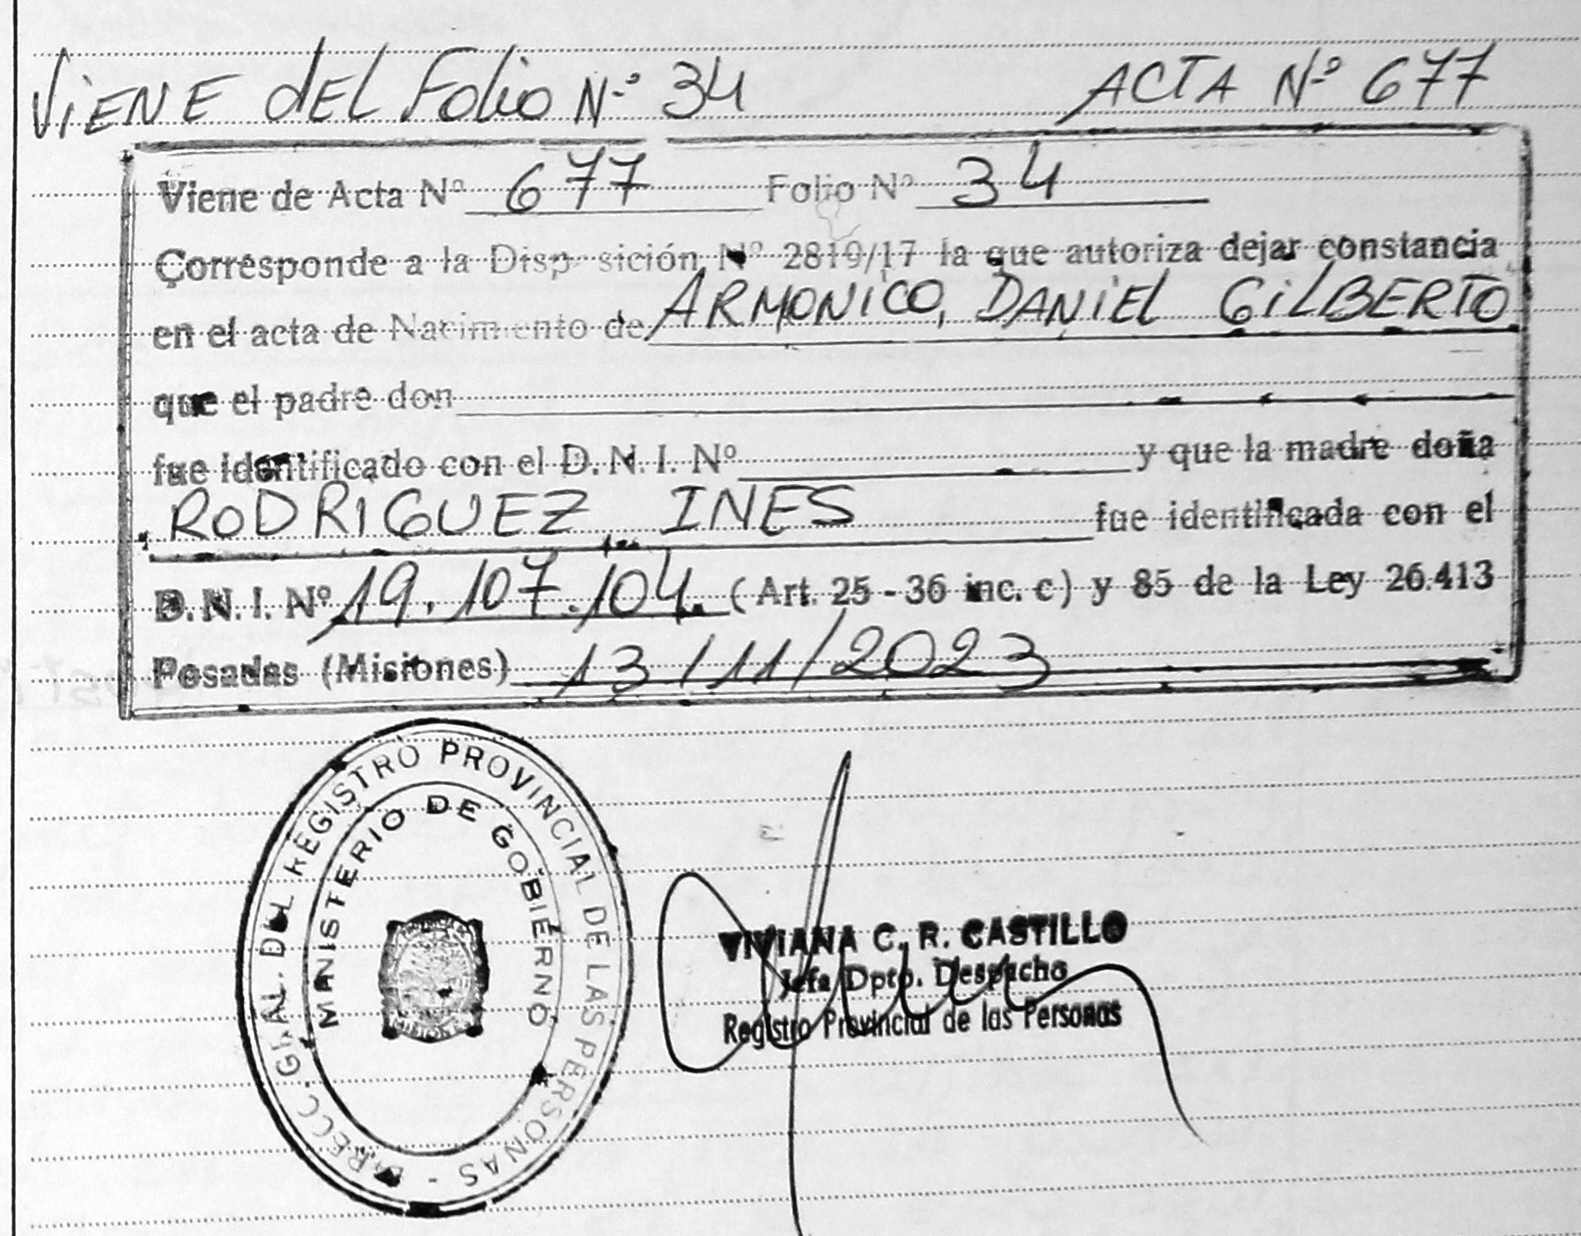 ViENE dEL Folio N-º 34 ACTA Nº 677
Viene de Acta Nº 677 Folio Nº 34
Corresponde a la Disposición Nº 2819/17 la que autoriza dejar constancia
en el acta de Nacimiento de ARMONICO, DANiEL GiLBERTO
que el padre don
fue identificado con el D.N.I. Nº y que la madre doña
RODRIGUEZ INES fue identificada con el
D.N.I. Nº 19.107.104. (Art. 25 - 36 inc. c) y 85 de la Ley 26.413
Posadas (Misiones) 13/11/2023
DIRECC. GRAL. DEL REGISTRO PROVINCIAL DE LAS PERSONAS -
MINISTERIO DE GOBIERNO
MISIONES
VIVIANA C. R. CASTILLO
Jefa Dpto. Despacho
Registro Provincial de las Personas